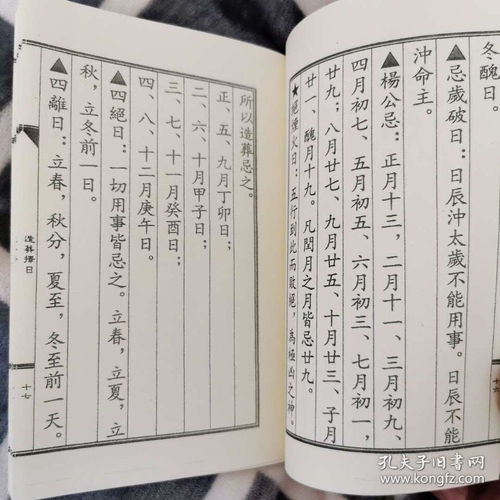 冬醜日。
▲忌歲破日：日辰沖太歲不能用事。日辰不能
沖命主。
▲楊公忌：正月十三，二月十一、三月初九、
四月初七、五月初五、六月初三、七月初一，
廿九；八月廿七、九月廿五、十月廿三、子月
廿一、醜月十九。凡閏月之月皆忌廿九。
★絕煙火日：五行到此而敗絕，為極凶之神。
十六
所以造葬忌之。
正、五、九月丁卯日；
二、六、十月甲子日；
三、七、十一月癸酉日；
四、八、十二月庚午日。
▲四絕日：一切用事皆忌之。立春，立夏，立
秋，立冬前一日。
▲四離日：立春，秋分，夏至，冬至前一天。
造葬擇日
十七
孔夫子旧书网
www.kongfz.com